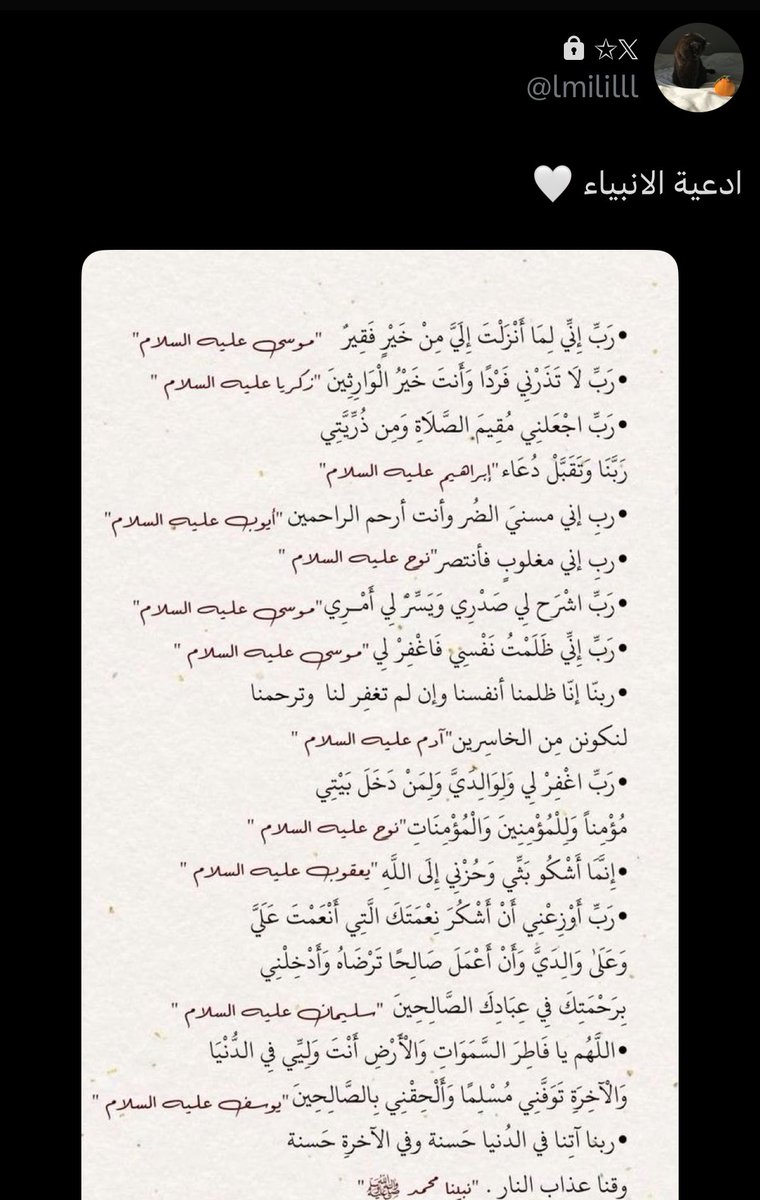 𝕏☆ 🔒
@lmililll
ادعية الانبياء 🤍
•رَبِّ إِنِّي لِمَا أَنْزَلْتَ إِلَيَّ مِنْ خَيْرٍ فَقِيرٌ "موسى عليه السلام"
•رَبِّ لَا تَذَرْنِي فَرْدًا وَأَنتَ خَيْرُ الْوَارِثِينَ "زكريا عليه السلام "
•رَبِّ اجْعَلنِي مُقِيمَ الصَّلَاةِ وَمِن ذُرِّيَّتِي
رَبَّنَا وَتَقَبَّلْ دُعَاء"إبراهيم عليه السلام"
•ربِ إني مسنيَ الضُر وأنت أرحم الراحمين "أيوب عليه السلام"
•ربِ إني مغلوبٍ فأنتصر"نوح عليه السلام "
•رَبِّ اشْرَح لِي صَدْرِي وَيَسِّرْ لِي أَمْـرِي"موسى عليه السلام"
•رَبِّ إِنِّي ظَلَمْتُ نَفْسِي فَاغْفِرْ لِي "موسى عليه السلام "
•ربنّا إنّا ظلمنا أنفسنا وإن لم تغفِر لنا وترحمنا
لنكونن مِن الخاسِرين"آدم عليه السلام "
•رَبِّ اغْفِرْ لِي وَلِوَالِدَيَّ وَلِمَنْ دَخَلَ بَيْتِي
مُؤْمِناً وَلِلْمُؤْمِنِينَ وَالْمُؤْمِنَاتِ"نوح عليه السلام "
•إِنَّمَا أَشْكُو بَثِّي وَحُزْنِي إِلَى اللَّهِ "يعقوب عليه السلام "
•رَبِّ أَوْزِعْنِي أَنْ أَشْكُرَ نِعْمَتَكَ الَّتِي أَنْعَمْتَ عَلَيَّ
وَعَلَىٰ وَالِدَيَّ وَأَنْ أَعْمَلَ صَالِحًا تَرْضَاهُ وَأَدْخِلْنِي
بِرَحْمَتِكَ فِي عِبَادِكَ الصَّالِحِينَ "سليمان عليه السلام "
•اللَّهُم يا فَاطِرَ السَّمَوَاتِ وَالْأَرْضِ أَنْتَ وَلِيِّي فِي الدُّنْيَا
وَالْآخِرَةِ تَوَفَّنِي مُسْلِمًا وَأَلْحِقْنِي بِالصَّالِحِينَ"يوسف عليه السلام "
•ربنا آتِنا في الدُنيا حَسنة وفي الآخرةِ حَسنة
وقنا عذاب النار . "نبينا محمد ﷺ "